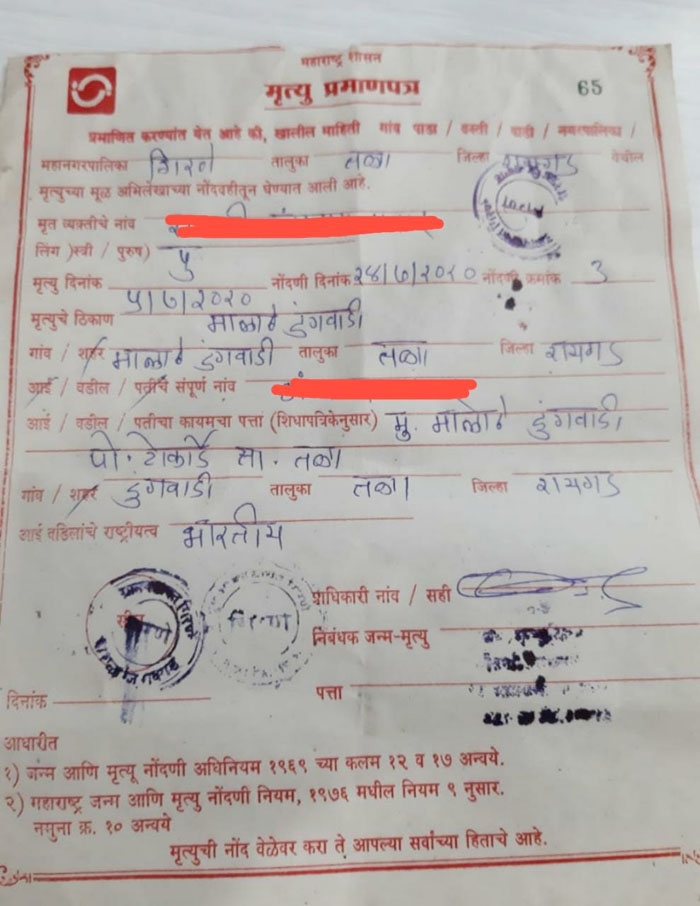 महाराष्ट्र शासन
मृत्यु प्रमाणपत्र
65
प्रमाणित करण्यांत येत आहे की, खालील माहिती गांव पाडा / वस्ती / वाडी / नगरपालिका /
महानगरपालिका गिरणे तालुका तळा जिल्हा रायगड येथील
मृत्युच्या मूळ अभिलेखाच्या नोंदवहीतून घेण्यात आली आहे.
मृत व्यक्तीचे नांव
लिंग )स्त्री / पुरुष) पु
मृत्यु दिनांक ५/७/२०२० नोंदणी दिनांक २४/७/२०२० नोंदणी क्रमांक 3
मृत्युचे ठिकाण मालाठे डुंगवाडी
गांव / शहर मालाठे डुंगवाडी तालुका तळा जिल्हा रायगड
आई / वडील / पतीचे संपूर्ण नांव
आई / वडील / पतीचा कायमचा पत्ता (शिधापत्रिकेनुसार) मु. मालाठे डुंगवाडी
पो. टोकार्डे ता. तळा
गांव / शहर डुंगवाडी तालुका तळा जिल्हा रायगड
आई वडिलांचे राष्ट्रीयत्व भारतीय
प्राधिकारी नांव / सही
निबंधक जन्म-मृत्यु
दिनांक
पत्ता
आधारीत
१) जन्म आणि मृत्यू नोंदणी अधिनियम १९६९ च्या कलम १२ व १७ अन्वये.
२) महाराष्ट्र जन्म आणि मृत्यु नोंदणी नियम, १९७६ मधील नियम ९ नुसार.
नमुना क्र. १० अन्वये
मृत्युची नोंद वेळेवर करा ते आपल्या सर्वांच्या हिताचे आहे.